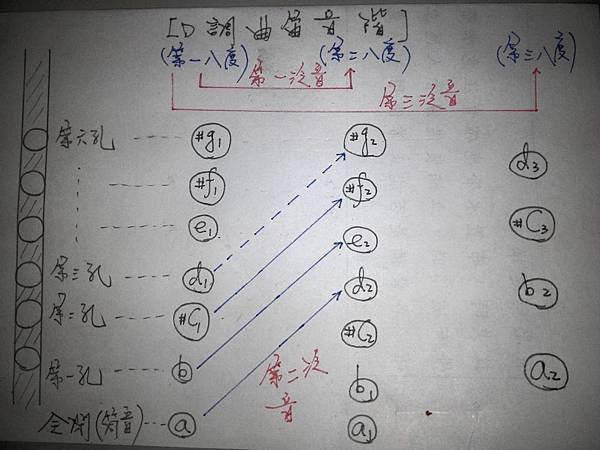 [D調曲笛音階]
(第一八度) (第二八度) (第三八度)
第一次音
第三次音
第六孔 #g1 #g2
d3
#f1 #f2
e1 e2 #C3
第三孔 d1 d2 b2
第二孔 #C1 #C2
第一孔 b b1 a2
第二次音
全閉(筒音) a a1